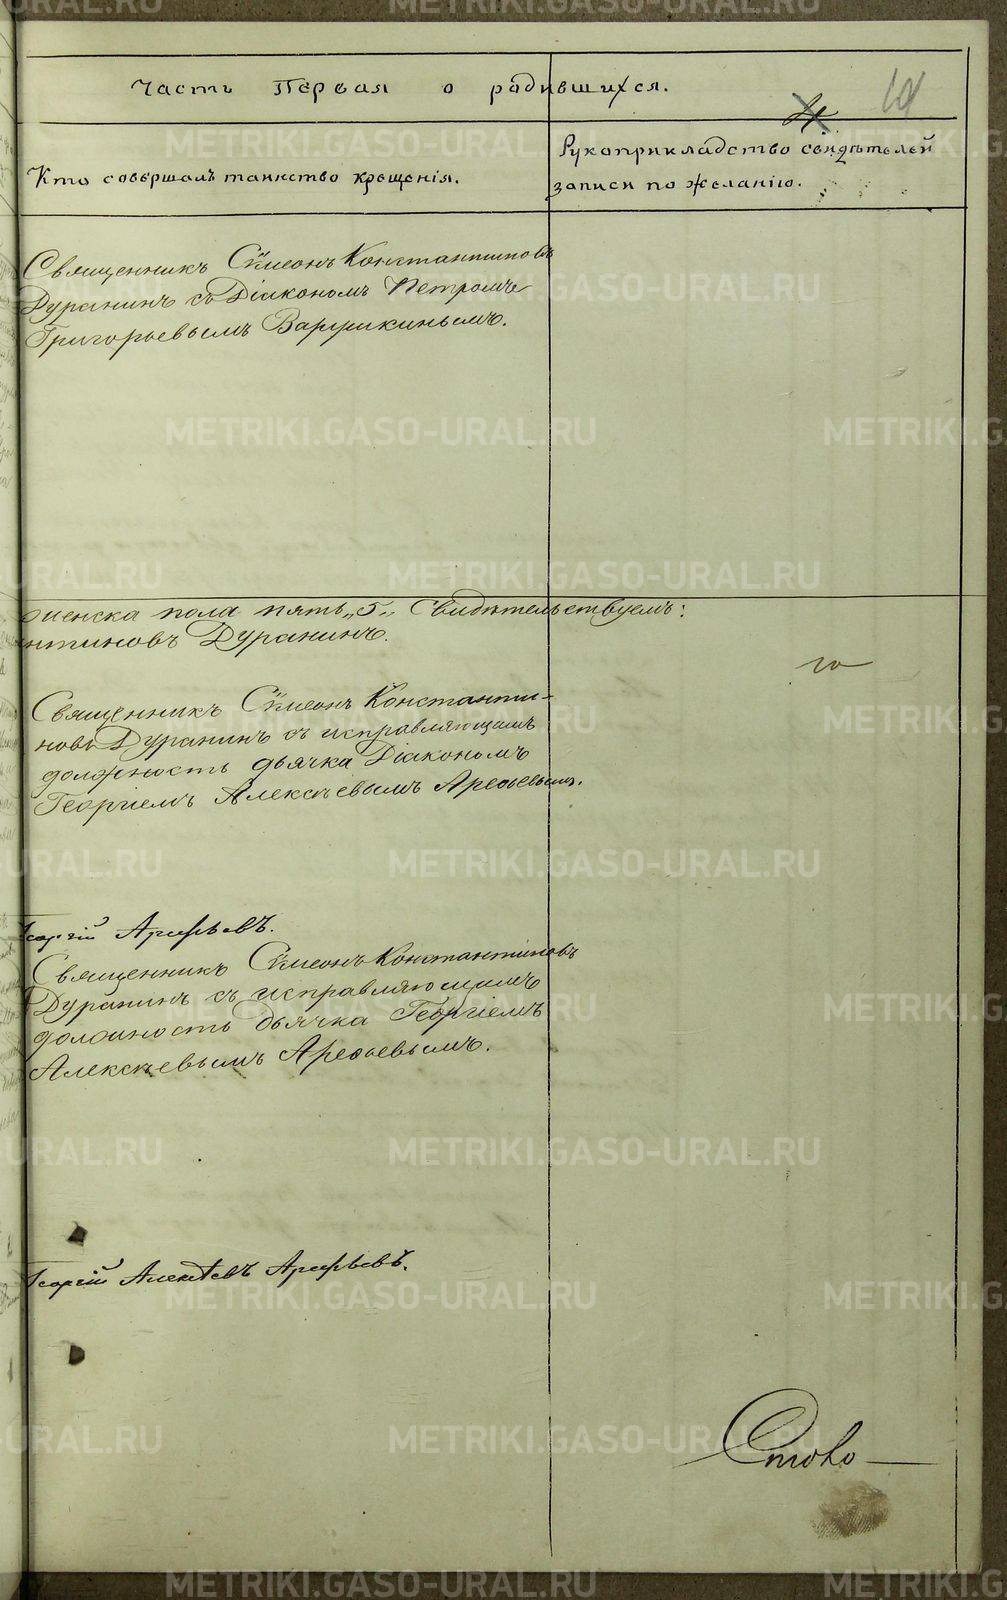 Часть Первая о родившихся.
Кто совершалъ таинство крещенія.
Рукоприкладство свидѣтелей
записи по желанію.
Священникъ Сѵмеонъ Константиновъ
Дуранинъ съ Діакономъ Петромъ
Григорьевымъ
женска пола пять „5„ Свидѣтельствуемъ:
нтиновъ Дуранинъ.
го
Священникъ Сѵмеонъ Константи-
новъ Дуранинъ съ исправляющимъ
должность дьячка Діакономъ
Георгіемъ Алексѣевымъ Арефьевымъ.
Георгій Арефьевъ.
Священникъ Сѵмеонъ Константиновъ
Дуранинъ съ исправляющимъ
должность дьячка Георгіемъ
Алексѣевымъ Арефьевымъ.
Георгій Алексѣевъ Арефьевъ.
METRIKI.GASO-URAL.RU